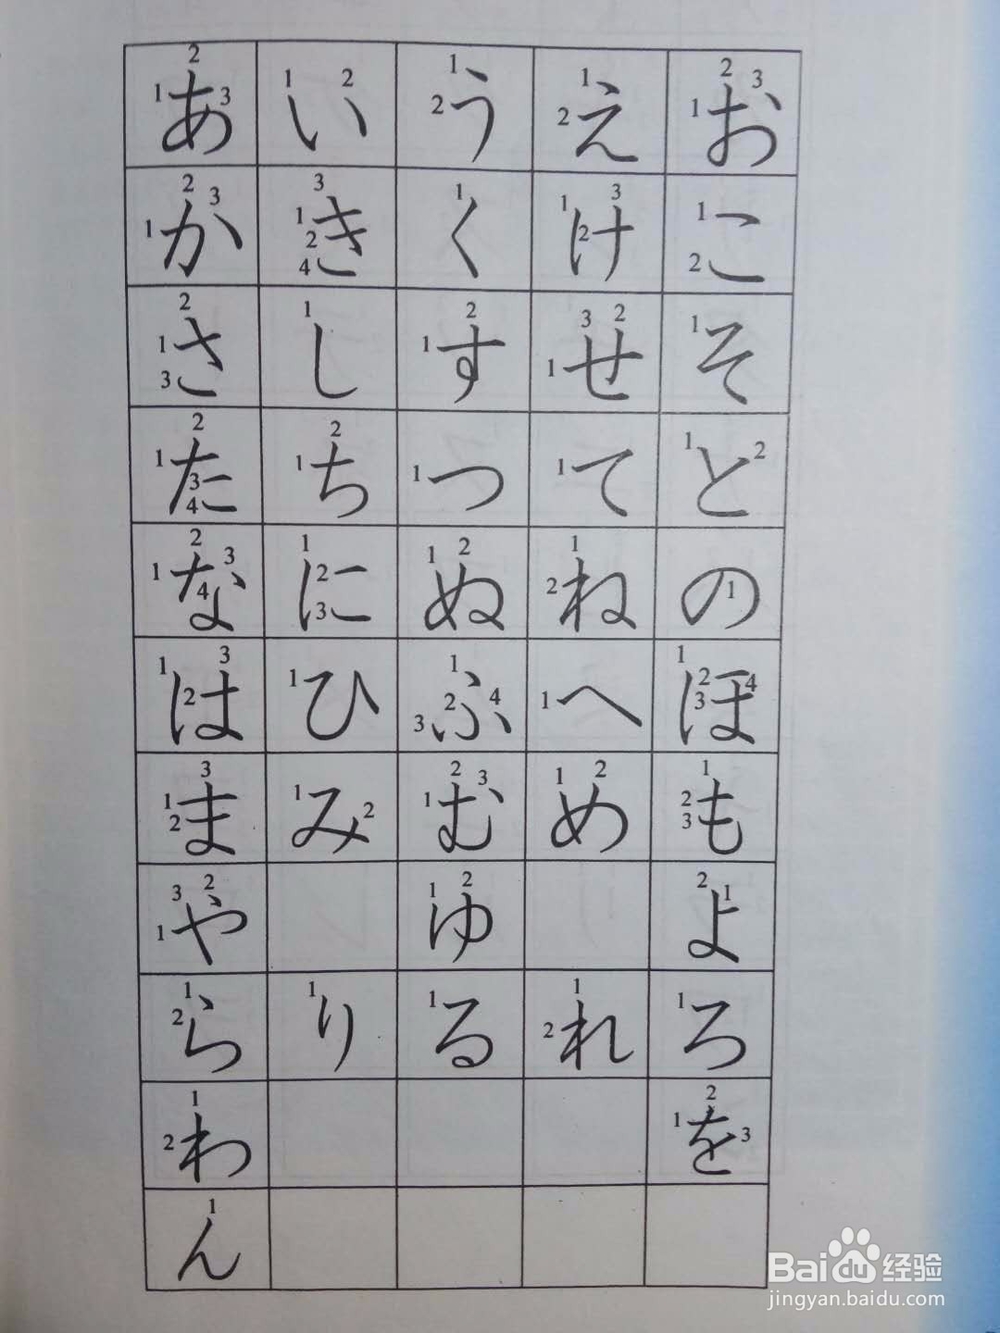 あ い う え お
か き く け こ
さ し す せ そ
た ち つ て と
な に ぬ ね の
は ひ ふ へ ほ
ま み む め も
や ゆ よ
ら り る れ ろ
わ を
ん
Baidu 经验
jingyan.baidu.com